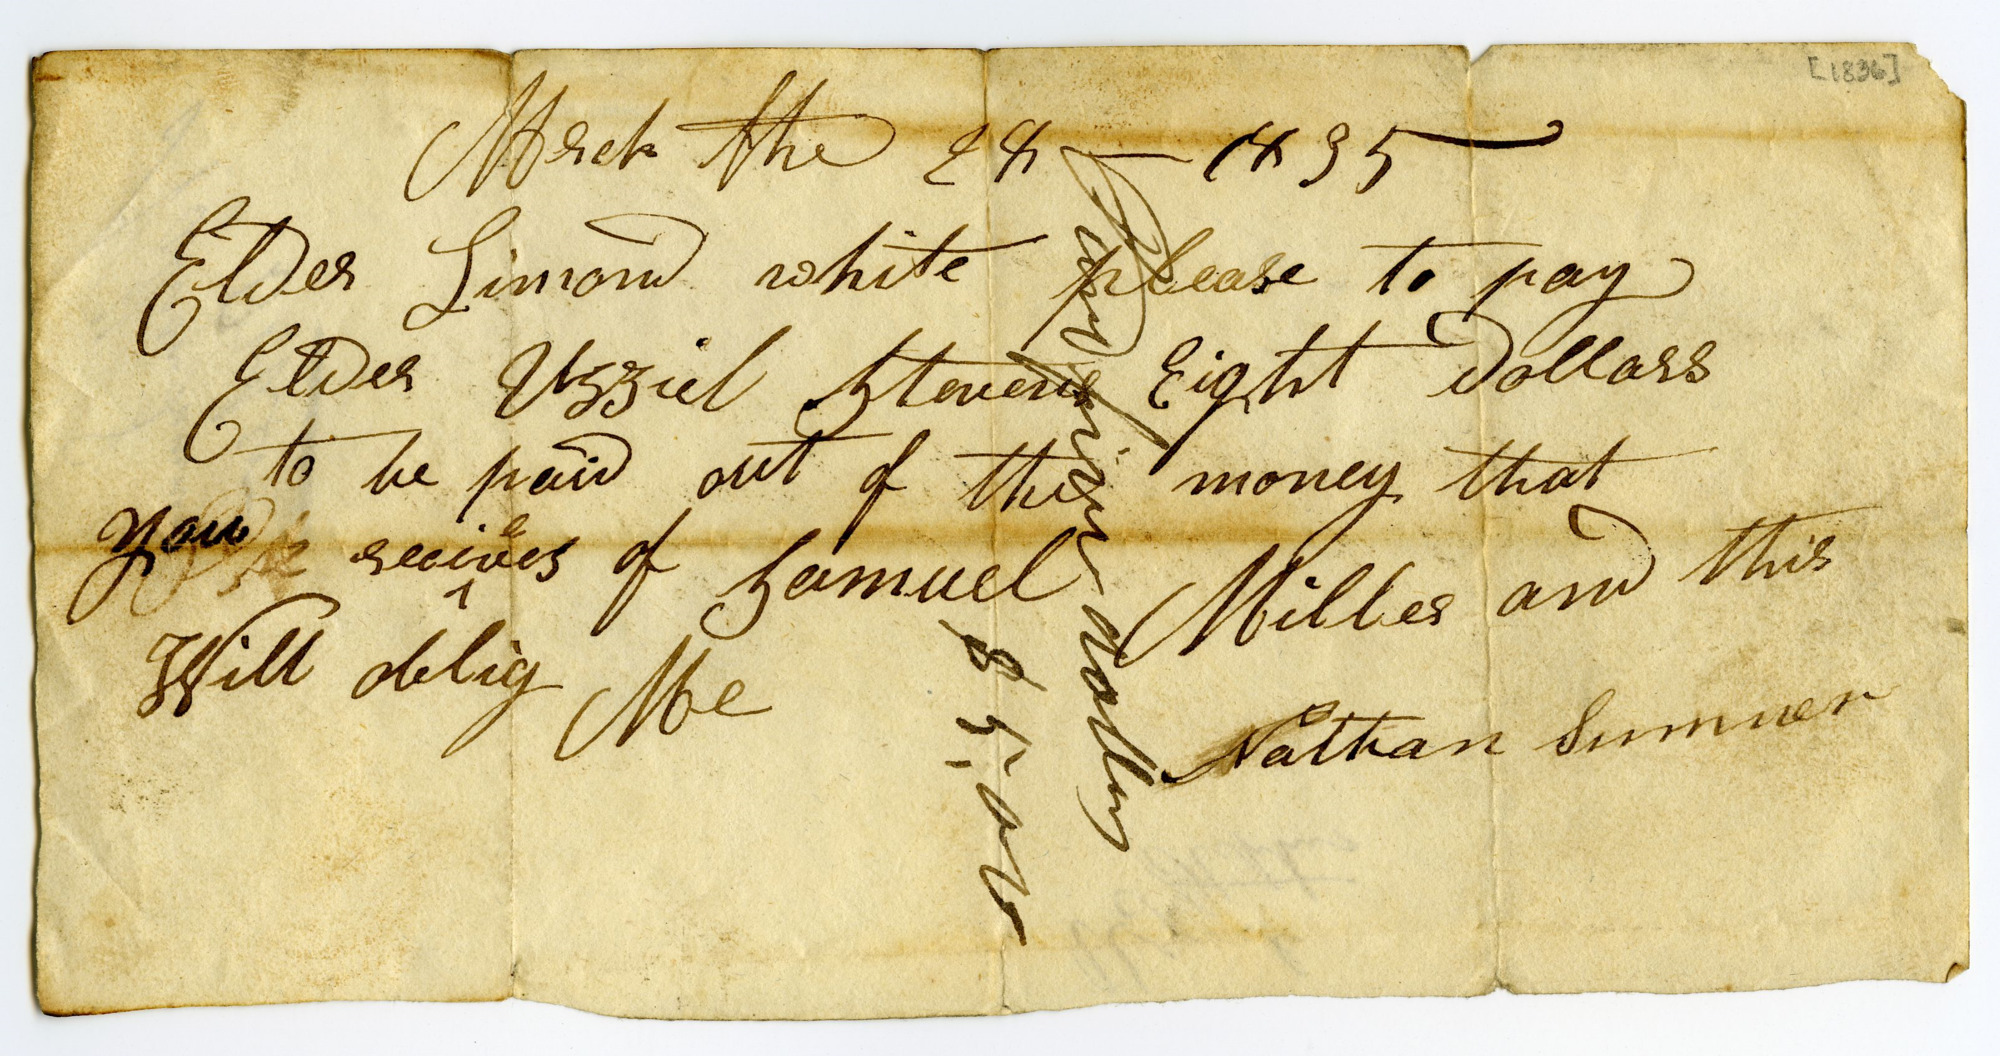 [1836]
March the 28 - 1835
Elder Limond white please to pay
Elder Uzziel Stevens Eight Dollars
to be paid out of the money that
you receives of Samuel Miller and this
Will oblig Me
Nathan Sumner
dollars